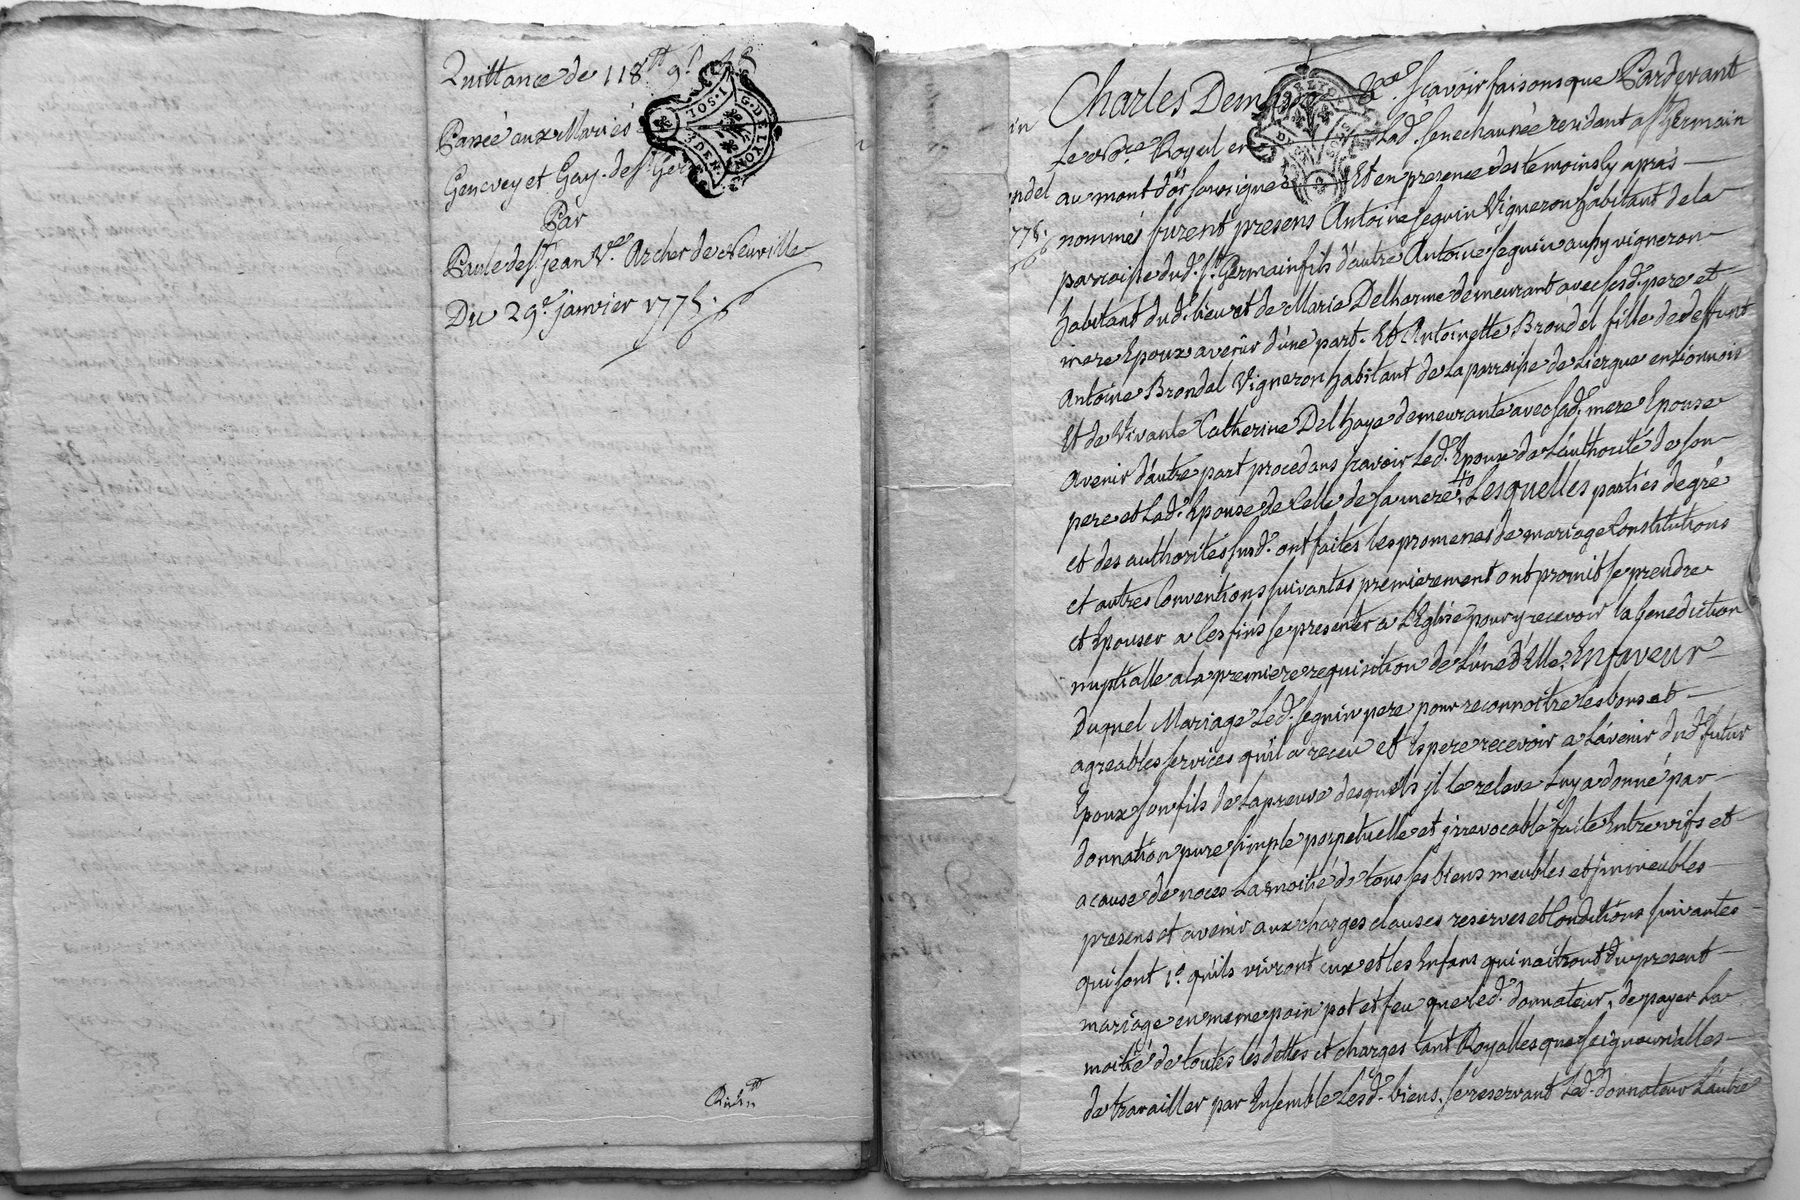 Quittance de 118ᵗᵗ 9ˢ
Passée aux Mariés
Genevey et Gay. de Sᵗ Ger
Par
Paule de Sᵗ jean Vᵉ Archer de Neuville
Du 29ᵉ janvier 1775.
1.SOL.
3.DEN
G.DE LYON
in
ndel
Charles Dem &ᵃ sçavoir faisons que Pardevant
Le Noʳᵉ Royal en Lad. senechaussée residant a sᵗ Germain
au mont d'or soussigné Et en presence des temoins cy apres
nommés furent presens Antoine seguin Vigneron habitant de la
parroisse dud. sᵗ Germain fils d'autre Antoine seguin aussy vigneron
habitant dud. lieu et de Marie Delhorme demeurant avec sesd. pere et
mere Epoux avenir d'une part. Et Antoinette Brondel fille de deffunt
Antoine Brondel Vigneron habitant de la parroisse de Liergue en Lionnois
Et de Vivante Catherine Delhaye demeurante avec sad. mere Epouse
Avenir d'autre part procedans scavoir Led. Epoux de L'authorité de son
pere et Lad. Epouse de Celle de sa mere, Lesquelles parties de gré
et des authorités susd. ont faites les promesses de mariage Constitutions
et autres Conventions suivantes premierement ont promit se prendre
et Epouser a Ces fins se presenter a L'Eglise pour y recevoir la benediction
nuptialle a la premiere requisition de L'une d'Elle, En faveur
Duquel Mariage Led. seguin pere pour reconnoitre les bons et
agreables services qu'il a receu et Espere recevoir a L'avenir dud. futur
Epoux son fils de La preuve desquels il le releve Luy a donné par
donnation pure simple perpetuelle et irrevocable faite Entre vifs et
a cause de noces La moitié de tous ses biens meubles et immeubles
presens et avenir aux charges clauses reserves et Conditions suivantes
qui sont 1.º qu'ils vivront eux et les Enfans qui naitront du present
mariage en meme pain pot et feu que led. donnateur, de payer La
moitié de toutes les dettes et charges tant Royalles que seigneurialles
de travailler par Ensemble Lesd. biens, se reservant Led. donnateur L'autre